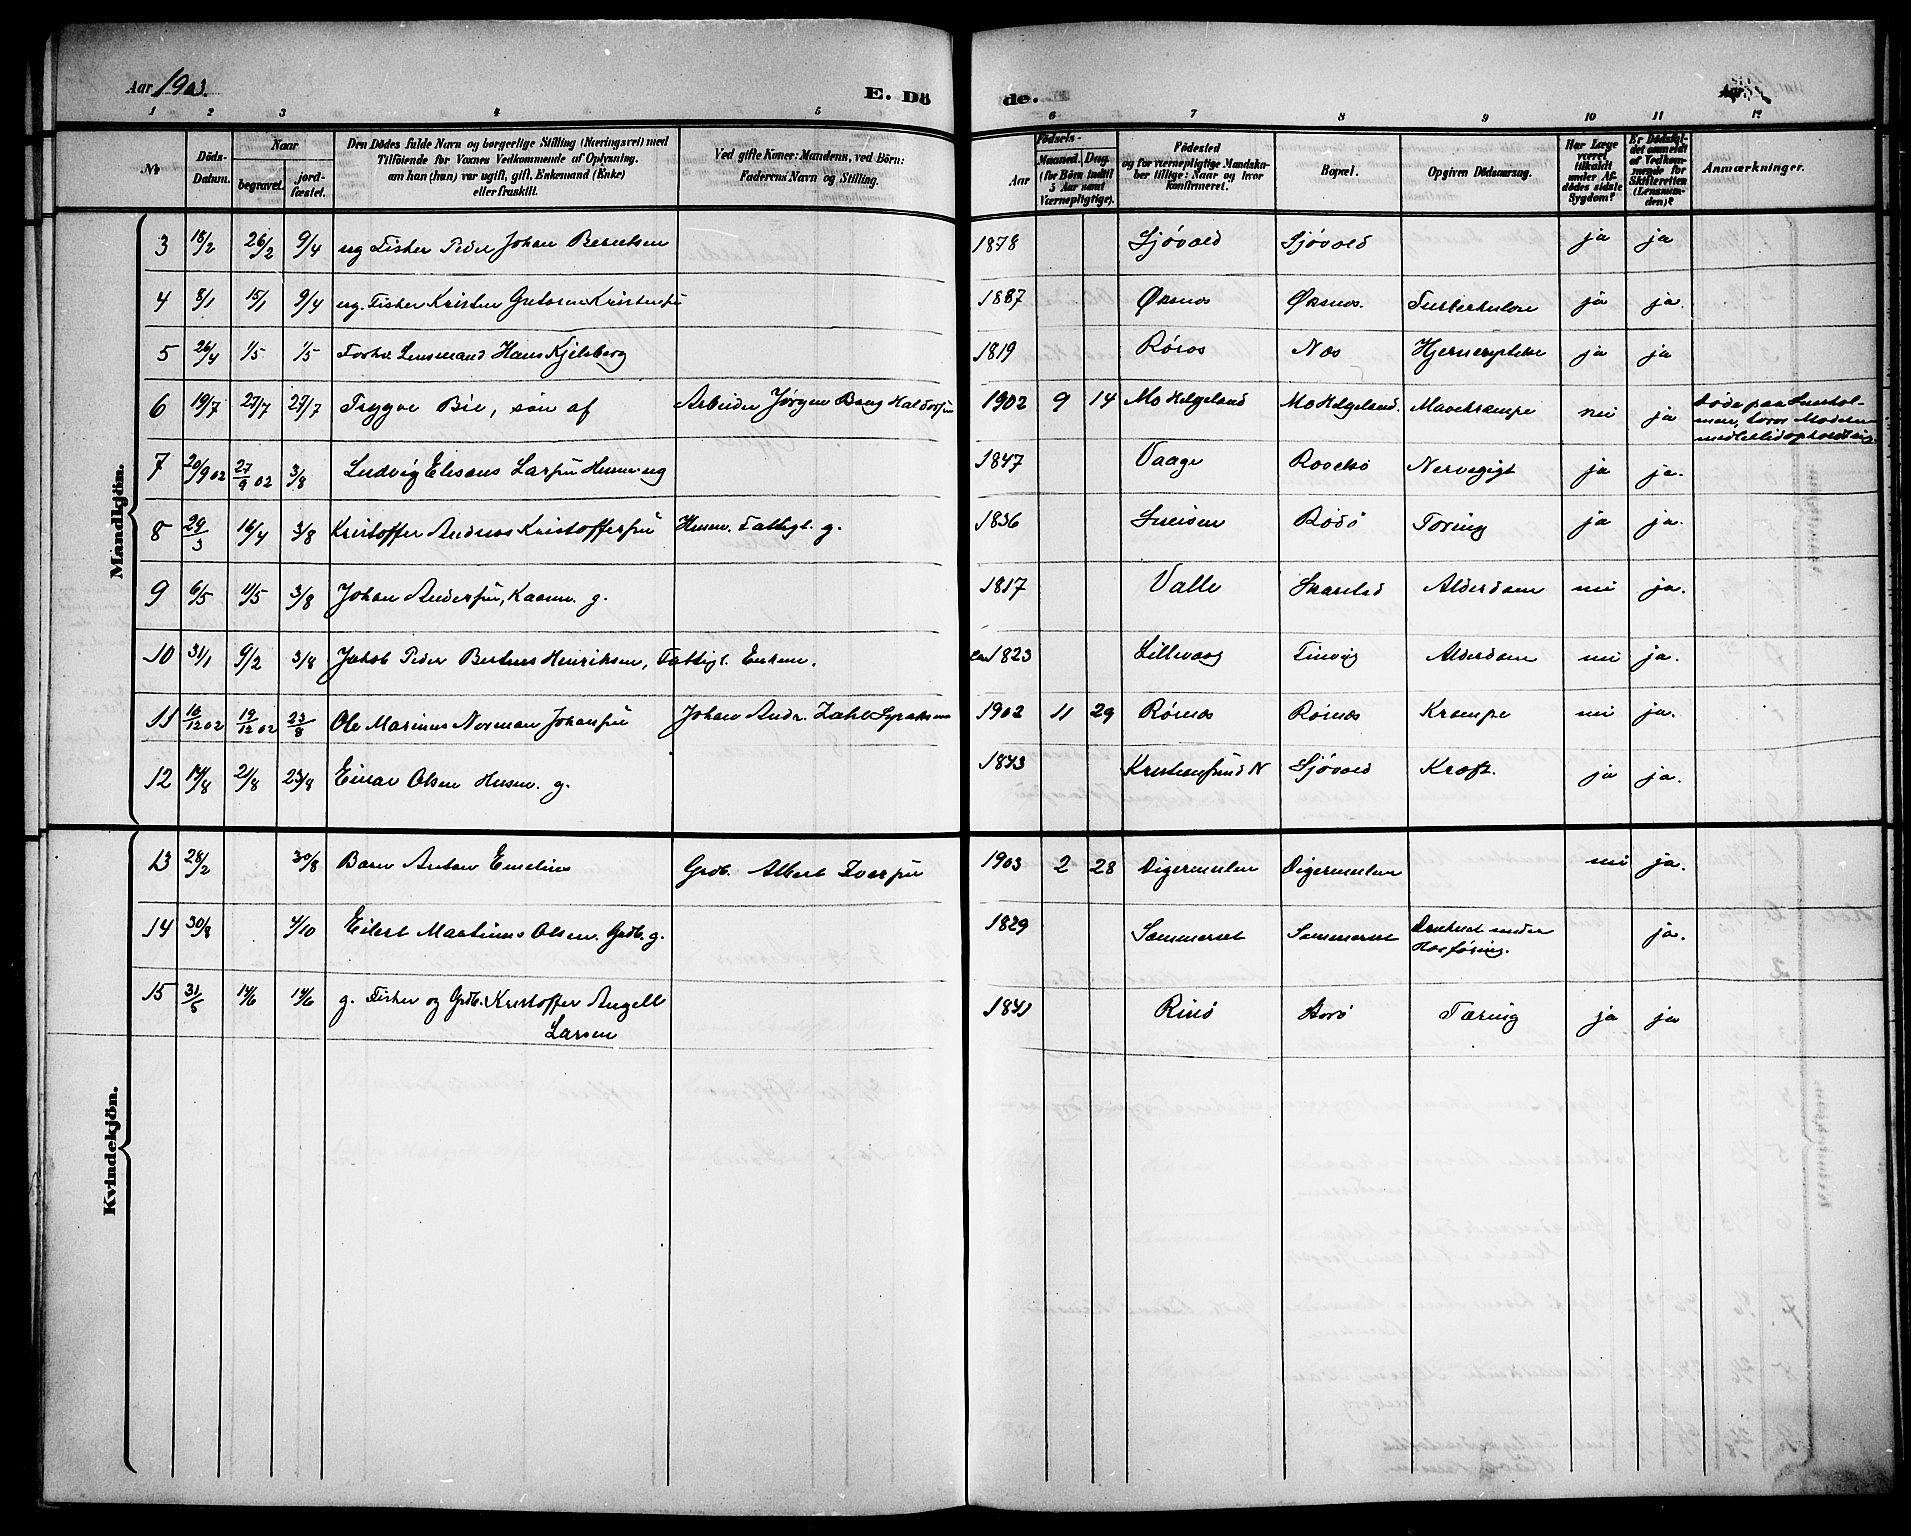 Aar 1903.
E. Dö de.
Aar
1 2 3 4 5 6 7 8 9 10 11 12
№
Döds-Datum.
Naar
begravet.
jord-fæstet.
Den Dödes fulde Navn og borgerlige Stilling (Næringsvei) med
Tilföiende for Voxnes Vedkommende af Oplysning,
om han (hun) var ugift, gift, Enkemand (Enke)
eller fraskilt.
Ved gifte Koner: Mandens, ved Börn:
Faderens Navn og Stilling.
Födsels-
Aar
Maaned. Dag.
(for Börn indtil
5 Aar samt
Værnepligtige).
Födested
og for værnepligtige Mandska-
ber tillige: Naar og hvor
konfirmeret.
Bopæl.
Opgiven Dödsaarsag.
Har Læge
været
tilkaldt
under Af-
dödes sidste
Sygdom?
Er Dödsfal-
det anmeldt
af Vedkom-
mende for
Skifteretten
(Lensman-
den)?
Anmærkninger.
Mandkjön.
3 18/2 26/2 9/4 ug Fisker Peder Johan Berntsen 1878 Sjövold Sjövold ja ja
4 8/1 15/1 9/4 ug. Fisker Kristen Kristensen 1887 Øksnes Øksnes. Tuberkulose ja ja.
5 26/4 1/5 1/5 Forhv. Lensmand Hans Kjelsberg 1819 Röros Næs ja ja
6 19/7 27/7 27/7 Trygve Bie, søn af Arbeider Jørgen Bang Haldorsen 1902 9 14 Mo Helgeland Mo Helgeland. Mavekrampe nei ja Döde paa
7 20/9 02 27/9 02 3/8 Ludvig Larsen 1847 Vaage ja ja.
8 29/3 16/4 3/8 Kristoffer Andreas Kristoffersen Husm. Fattigl. g. 1836 Rödö Tæring ja ja.
9 6/5 11/5 3/8 Johan Andersen, Kaarm. g. 1817 Valle Skarstad Alderdom nei ja.
10 31/1 9/2 3/8 Jakob Peder Henriksen, Fattigl. Enkem. 1823 Lillevaag Finvig Alderdom nei ja.
11 16/12 02 19/12 02 23/8 Ole Marinus Norman Johansen Johan Andr. Zahl 1902 11 29 Krampe nei ja.
12 14/8 21/8 23/8 Einar Olsen Husm. g. 1843 Kristiansund N Sjövold Kræft. ja ja.
Kvindekjön.
13 28/2 30/8 Barn Anton Emelius Grdb. Albert Iversen 1903 2 28 Digermulen Digermulen nei ja.
14 30/8 4/10 Eilert Martinus Olsen. Grdb. g. 1829 Sommerset Sommerset Druknet under ja.
15 31/5 14/6 14/6 g. Fisker og Grdb. Kristoffer Angell 1841 Risö Tæring ja ja
Larsen